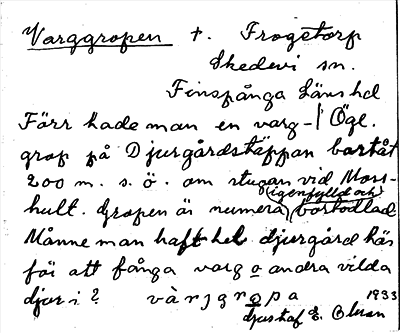 Varggropen t. Frogstorp
Skedevi sn.
Finspånga Länshd
Förr hade man en varg- Ögl.
grop på Djurgårdstäppan bortåt
200 m. s. ö. om stugan vid Mors-
hult. Gropen är numera (igenfylld och) bortodlad
Månne man haft hel djurgård här
för att fånga varg o andra vilda
djur i? vàrjgropa 1933
Gustaf E. Olsson